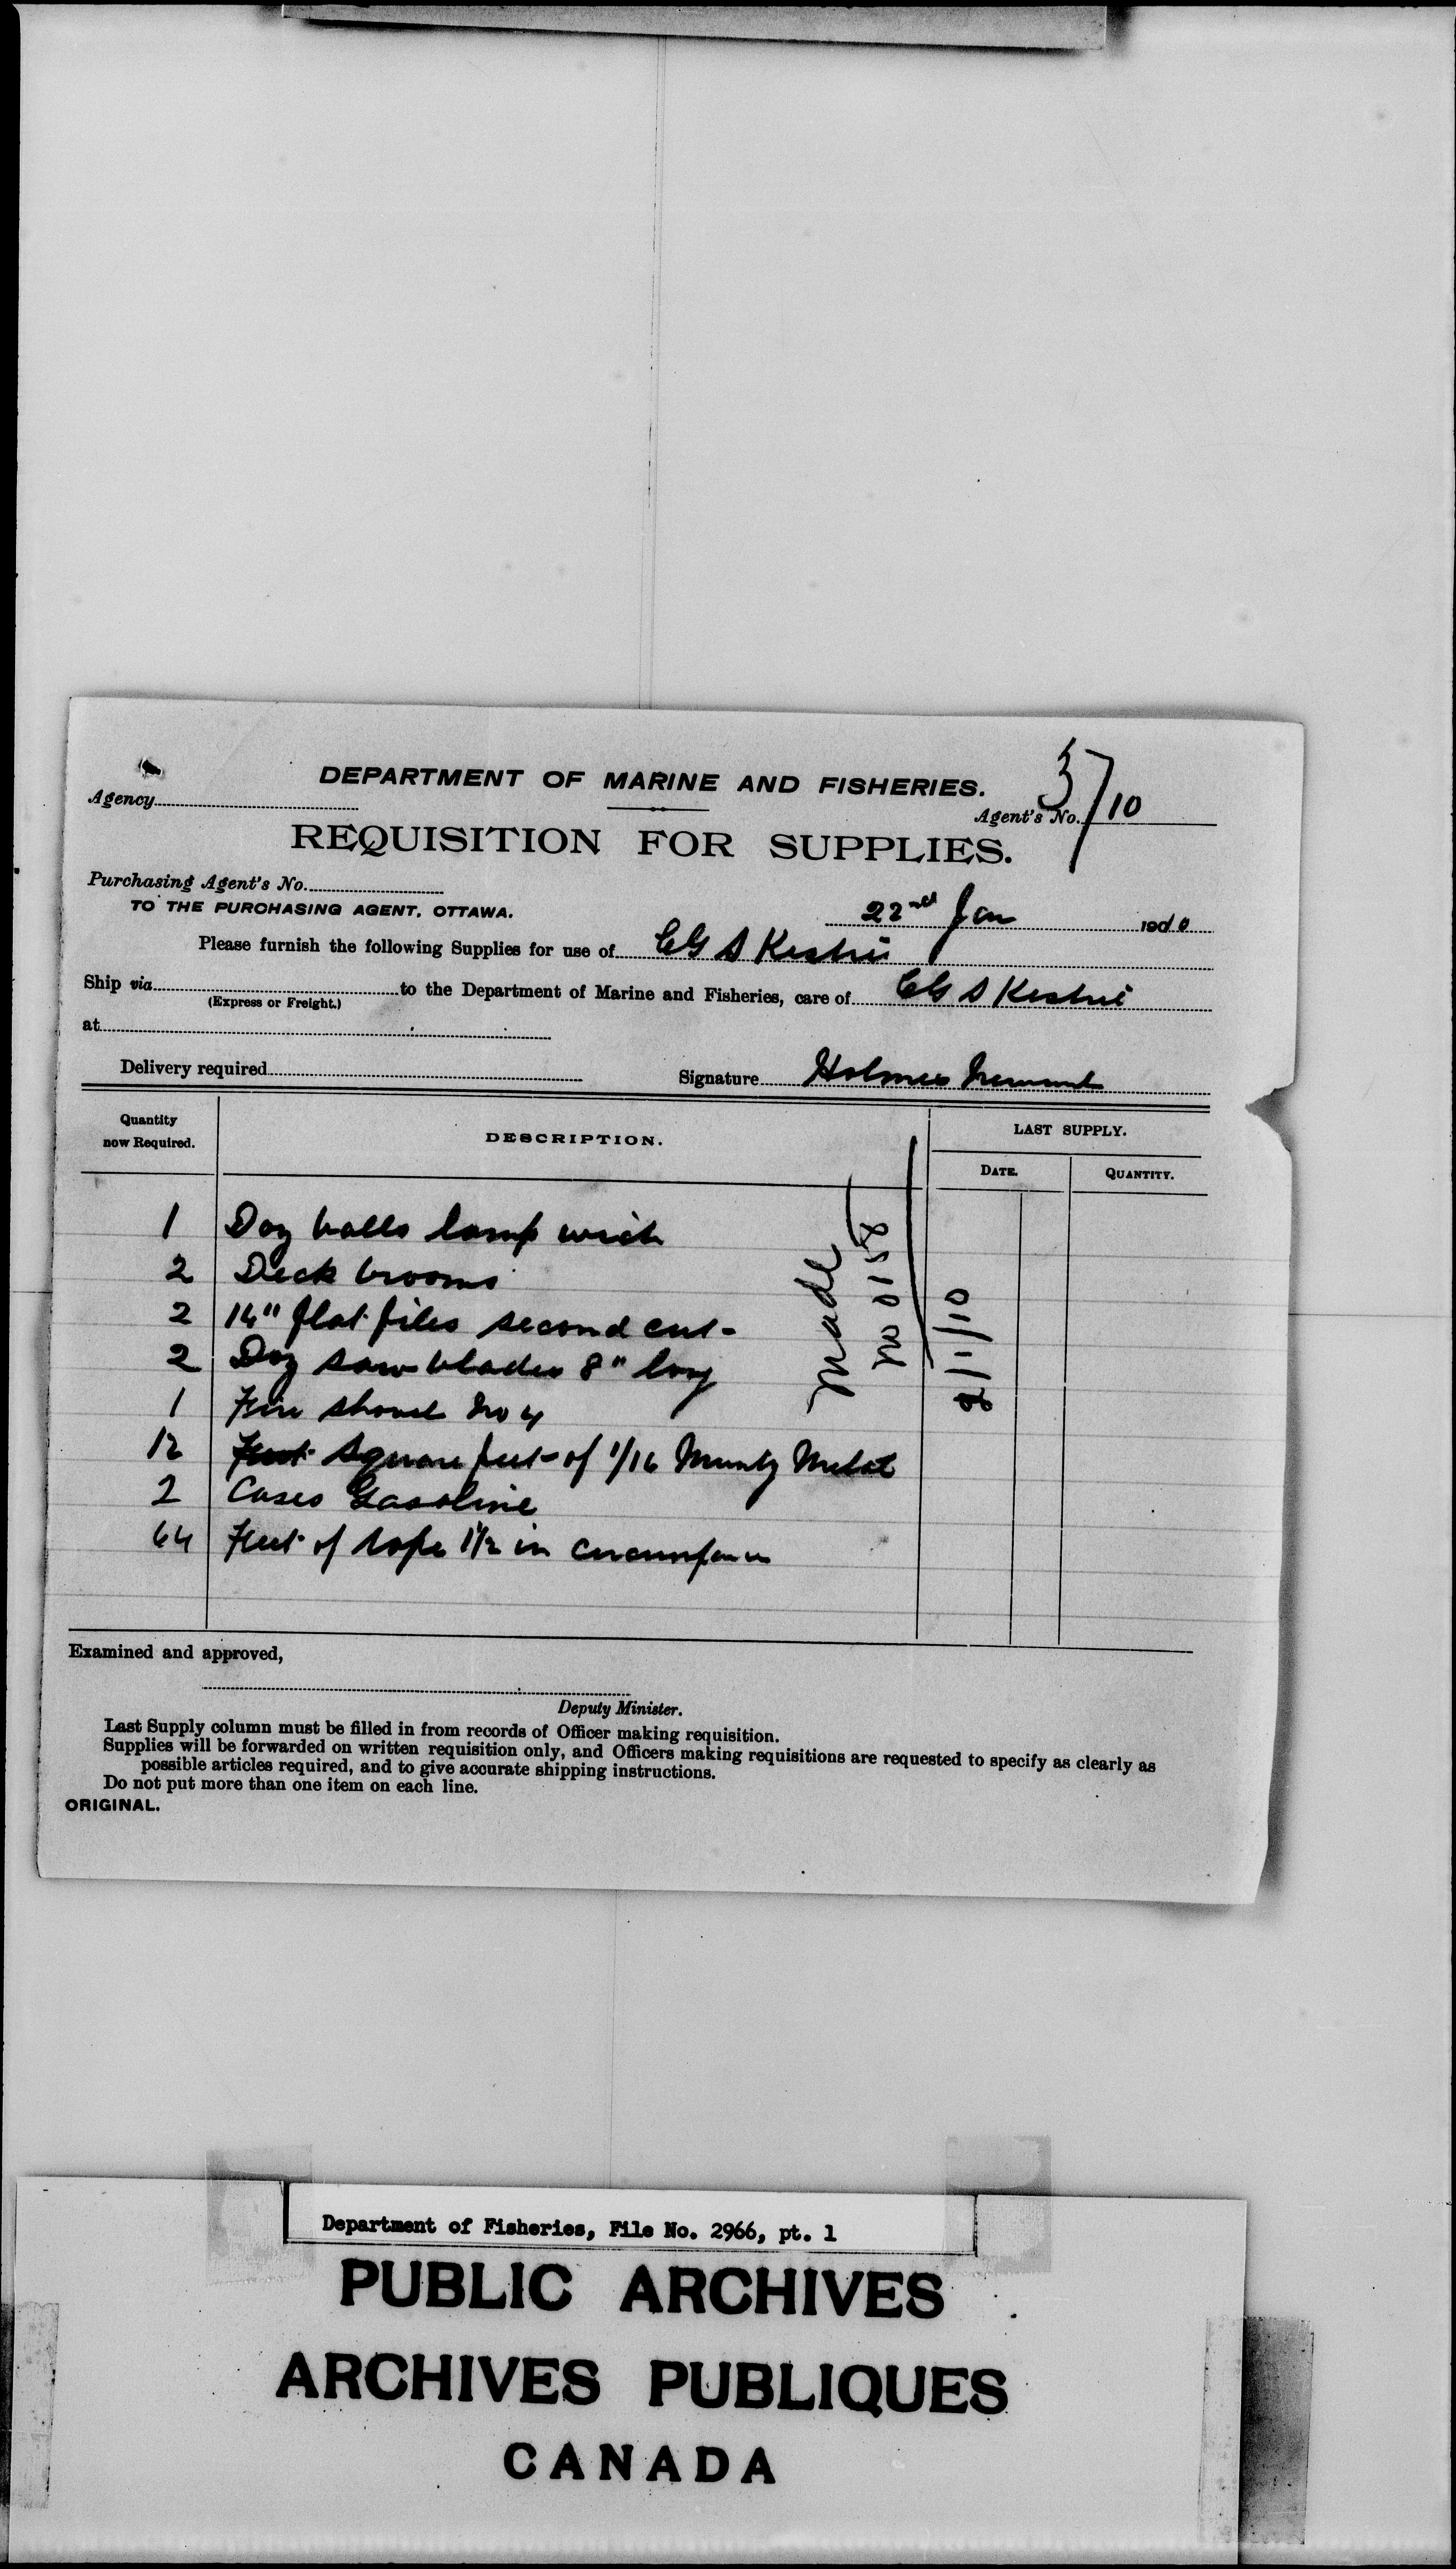 DEPARTMENT OF MARINE AND FISHERIES.
Agency
Agent's No. 57/10
REQUISITION FOR SUPPLIES.
Purchasing Agent's No.
TO THE PURCHASING AGENT, OTTAWA.
22nd Jan 1910
Please furnish the following Supplies for use of CGS Kestrel
Ship via to the Department of Marine and Fisheries, care of CGS Kestrel
(Express or Freight.)
at
Delivery required Signature Holmes Newcomb
Quantity now Required. DESCRIPTION. LAST SUPPLY.
DATE. QUANTITY.
1 Doz balls lamp wick
2 Deck brooms
2 14" flat files second cut
2 Doz saw blades 8" long
1 Fire shovel No 4
12 Feet Square feet of 1/16 Muntz Metal
2 Cases Gasoline
64 Feet of rope 1 1/2 in circumference
Made
No 0158
Examined and approved,
Deputy Minister.
Last Supply column must be filled in from records of Officer making requisition.
Supplies will be forwarded on written requisition only, and Officers making requisitions are requested to specify as clearly as
possible articles required, and to give accurate shipping instructions.
Do not put more than one item on each line.
ORIGINAL.
Department of Fisheries, File No. 2966, pt. 1
PUBLIC ARCHIVES
ARCHIVES PUBLIQUES
CANADA